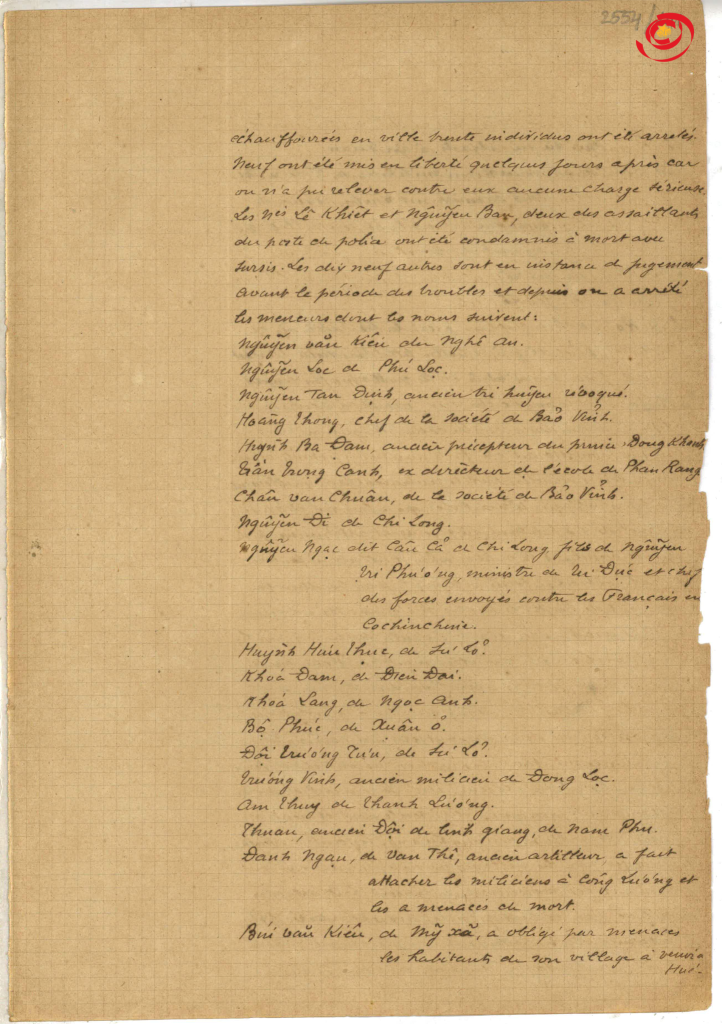 2554/
échauffourées en ville trente individus ont été arretés.
Neuf ont été mis en liberté quelques jours après car
on n'a pu relever contre eux aucune charge sérieuse.
Les nés Lê Khiêt et Nguyễn Bay, deux des assaillants
du poste de police ont été condamnés à mort avec
sursis. Les dix neuf autres sont en instance de jugement
avant la période des troubles et depuis on a arrêté
les meneurs dont les noms suivent:
Nguyễn văn Kiêu du Nghê An.
Nguyễn Loc de Phú Lọc.
Nguyễn Tan Dinh, ancien tri huyện révoqué.
Hoang Thong, chef de la société de Bảo Vinh.
Huynh Ba Dam, ancien précepteur du prince Dong Khanh
Trần Trong Canh, ex directeur de l'école de Phan Rang
Chân van Chuân, de la société de Bảo Vinh.
Nguyễn Di de Chi Long.
Nguyễn Ngạc dit Cân Cả de Chi Long fils de Nguyễn
Tri Phương, ministre de Tu Đức et chef
des forces envoyés contre les Français en
Cochinchine.
Huynh Huu Thuc, de Sú Lổ.
Khoá Đam, de Dien Dai.
Khoá Lang, de Ngọc Anh.
Bộ Phúc, de Xuân Ổ.
Đội Trương Tựu, de Sú Lổ.
Trương Vinh, ancien milicien de Dong Lọc.
Am Thuy de Thanh Lương.
Thuan, ancien Đội de linh giang, de Nam Phu.
Danh Ngau, de Van Thê, ancien artilleur, a fait
attacher les miliciens à Công Lương et
les a menacés de mort.
Bùi văn Kiêu, de Mỹ xã, a obligé par menaces
les habitants de son village à venir à
Hué.